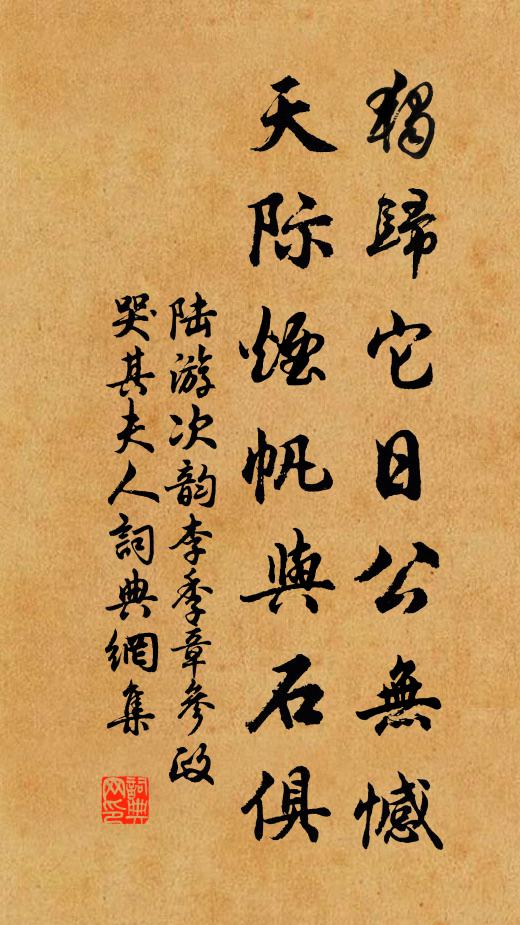 獨歸它日公無憾
天際煙帆與石俱
陆游次韵李季章參政
哭其夫人詞典網集
詞典
网印